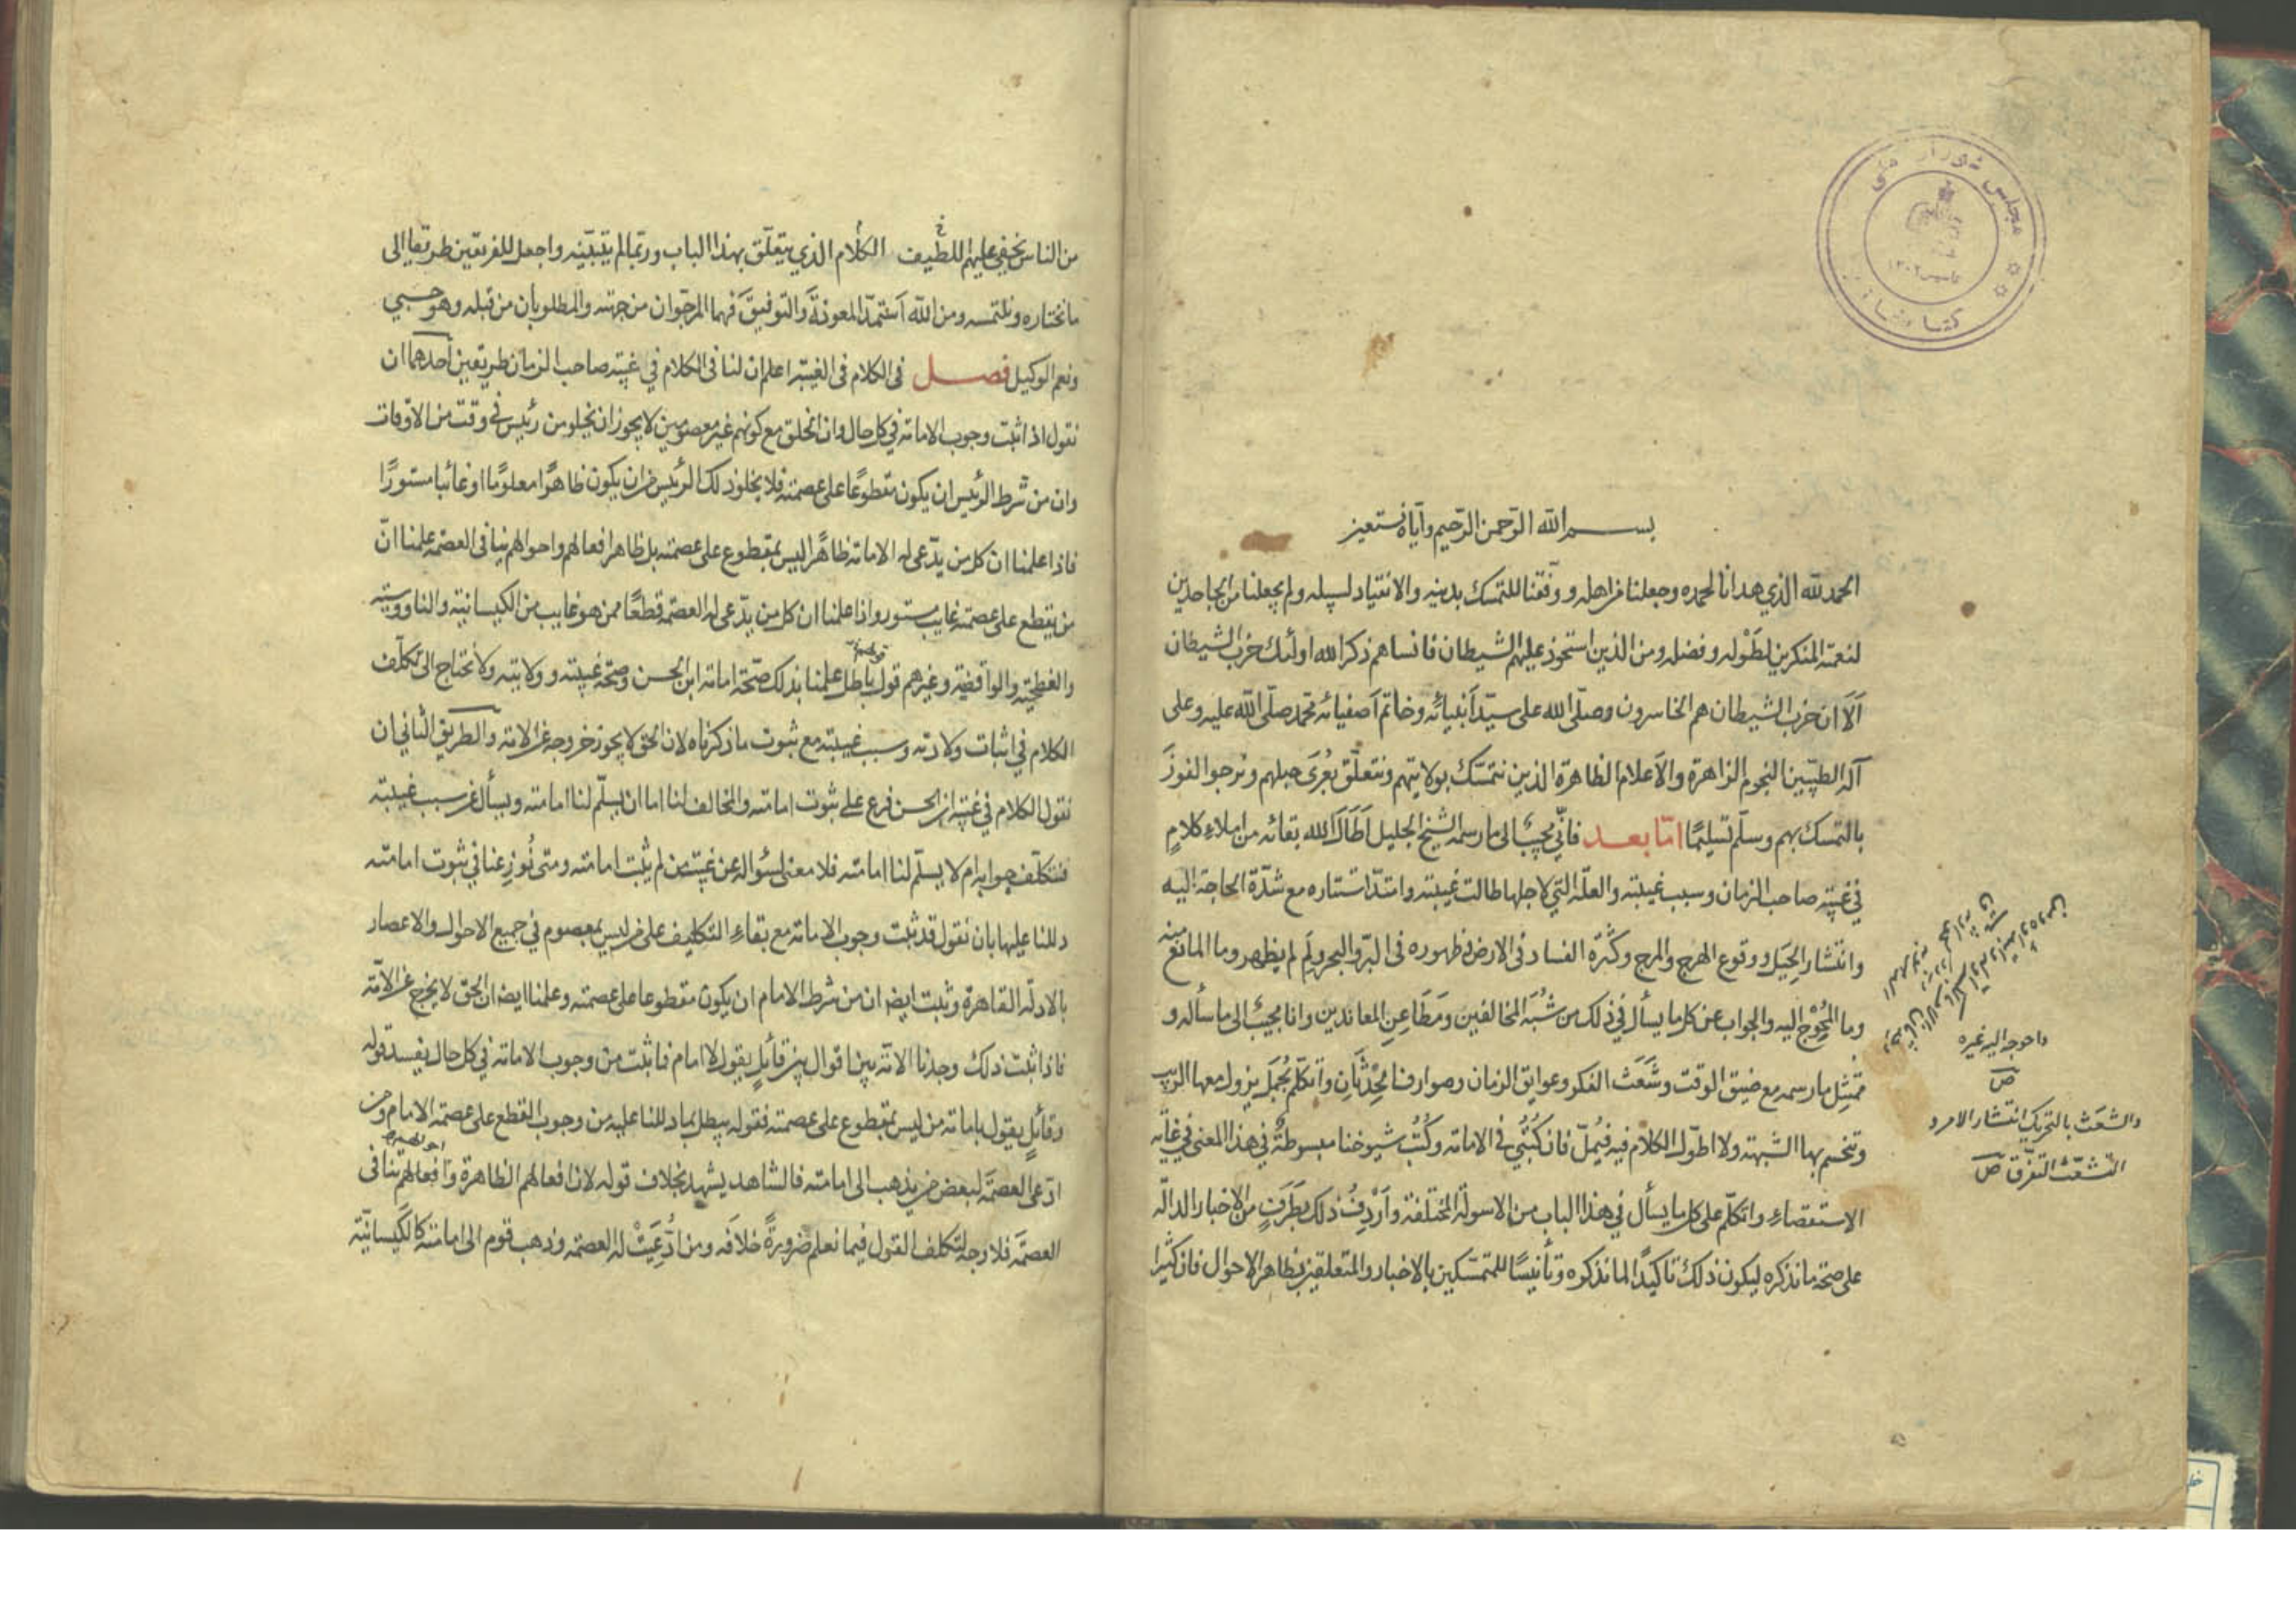 بسم الله الرحمن الرحيم واياه نستعين
الحمد لله الذي هدانا لحمده وجعلنا من اهله ووفقنا للتمسك بدينه والانقياد لسبيله ولم يجعلنا من الجاحدين
لنعمته المنكرين لطَوْله وفضله ومن الذين استحوذ عليهم الشيطان فانساهم ذكر الله اولئك حزب الشيطان
اَلَا ان حزب الشيطان هم الخاسرون وصلّى الله على سيّد اَنبيائه وخاتم اَصفيائه محمّد صلّى الله عليه وعلى
آله الطيّبين النجوم الزاهرة والاَعلام الظاهرة الذين نتمسّك بولايتهم ونتعلّق بعُرَى حبلهم ونرجوا الفوزَ
بالتمسك بهم وسلّم تسليمًا امّا بعد فانّي مجيبٌ الى ما رسمه الشيخ الجليل اَطَالَ الله بقائه من املاءِ كلامٍ
في غيبة صاحب الزمان وسبب غيبته والعلّة التي لاجلها طالت غيبته وامتدّ استتاره مع شدّة الحاجة اليه
وانتشار الحِيَل ووقوع الهرج والمرج وكثرة الفساد في الارض وظهوره في البرّ والبحر ولِمَ لم يظهر وما المانع منه
وما المُحْوِج اليه والجواب عن كل ما يسأل في ذلك من شُبَه المخالفين ومَطَاعِنِ المعاندين وانا مجيبٌ الى ما سأله و
ممتثِل ما رسمه مع ضيق الوقت وشَعَث الفكر وعوايق الزمان وصوارف الحِدْثَانِ واَتكلّم بجُمَلٍ يزول معها الريب
وتنحسم بها الشبهة ولا اطوّل الكلام فيه فيُملّ فان كتُبي في الامامة وكُتُب شيوخنا مبسوطةٌ في هذا المعنى في غاية
الاستقصاءِ واتكلّم على كل ما يسأل في هذا الباب من الاسولة المختلفة واَرْدِفُ ذلك بطَرَفٍ من الاخبار الدالّة
على صحّة ما نذكره ليكون ذلك تاكيدًا لما نذكره وتأنيسًا للمتمسّكين بالاخبار والمتعلقين بظاهر الاحوال فان كثيرا
واحوجه اليه غيره
ص
والشعَث بالتحريك انتشار الامر و
التشعّث التفرّق ص
من الناس يخفى عليهم اللطيف الكلام الذي يتعلّق بهذا الباب وربّما لم يتبيّنه واجعل للفريقين طريقا الى
ما نختاره ونلتمسه ومن الله اَستمدّ المعونةَ والتوفيقَ فهما المرجوّان من جهته والمطلوبان من قبله وهو حسبي
ونعم الوكيل فصل في الكلام في الغيبة اعلم ان لنا في الكلام في غيبة صاحب الزمان طريقين اَحدهما ان
نقول اذا ثبت وجوب الامامة في كل حال وان الخلق مع كونهم غير معصومين لا يجوز ان يخلو من رئيس في وقت من الاوقات
وان من شرط الرئيس ان يكون مقطوعًا على عصمته فلا يخلو ذلك الرئيس من ان يكون ظاهرًا معلومًا او غائبا مستورًا
فاذا علمنا ان كل من يدّعى له الامامة ظاهرًا ليس بمقطوع على عصمته بل ظاهر افعالهم واحوالهم ينافي العصمة علمنا انّ
من يقطع على عصمته غايب مستور واذا علمنا ان كل من يدّعى له العصمة قطعًا ممن هو غايب من الكيسانية والناووسية
والفطحية والواقفية وغيرهم قولهم باطل علمنا بذلك صحّة امامة ابن الحسن وصحّة غيبته وولايته ولا نحتاج الى تكلّف
الكلام في اثبات ولادته وسبب غيبته مع ثبوت ما ذكرناه لان الحق لا يجوز خروجه عن الامة والطريق الثاني ان
نقول الكلام في غيبة ابن الحسن فرع على ثبوت امامته والمخالف لنا اما ان يسلّم لنا امامته ويسأل عن سبب غيبته
فنتكلّف جوابه ام لا يسلّم لنا امامته فلا معنى لسؤاله عن غيبة من لم يثبت امامته ومتى نُوزِعنا في ثبوت امامته
دللنا عليها بان نقول قد ثبت وجوب الامامة مع بقاءِ التكليف على من ليس بمعصوم في جميع الاحوال والاعصار
بالادلّة القاهرة وثبت ايضه ان من شرط الامام ان يكون مقطوعا على عصمته وعلمنا ايضه ان الحق لا يخرج عن الاُمّة
فاذا ثبت ذلك وجدنا الامّة بين اقوال بين قائلٍ يقول لا امام فما ثبت من وجوب الامامة في كل حال يفسد قوله
وقائلٍ يقول بامامة من ليس بمقطوع على عصمته فقوله يبطل بما دللنا عليه من وجوب القطع على عصمة الامام ومن
ادّعى العصمَة لبعض من يذهب الى امامته فالشاهد يشهد بخلاف قوله لان افعالهم الظاهرة واحوالهم تنافي
العصمَة فلا وجه لتكلف القول فيما نعلم ضرورةً خلافَه ومن ادُّعِيَتْ له العصمة وذهب قوم الى امامته كالكَيسانيّة